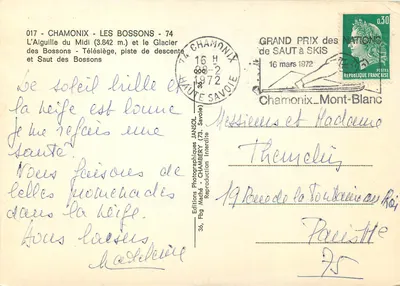 017 - CHAMONIX - LES BOSSONS - 74
L'Aiguille du Midi (3.842 m.) et le Glacier
des Bossons - Télésiège, piste de descente
et Saut des Bossons
74 CHAMONIX
16 H
28-2
1972
HAUTE SAVOIE
GRAND PRIX des NATIONS
de SAUT à SKIS
16 mars 1972
Chamonix_Mont-Blanc
0,30
REPUBLIQUE FRANÇAISE
Le soleil brille et
la neige est bonne
je me refais une
santé.
Nous faisons de
belles promenades
dans la neige.
Bons baisers
Madeleine
Editions Photographiques JANSOL
36, Fbg Maché - CHAMBÉRY (73, Savoie)
Reproduction Interdite
Messieurs et Madame
19 Rue de la Fontaine au Roi
Paris
75